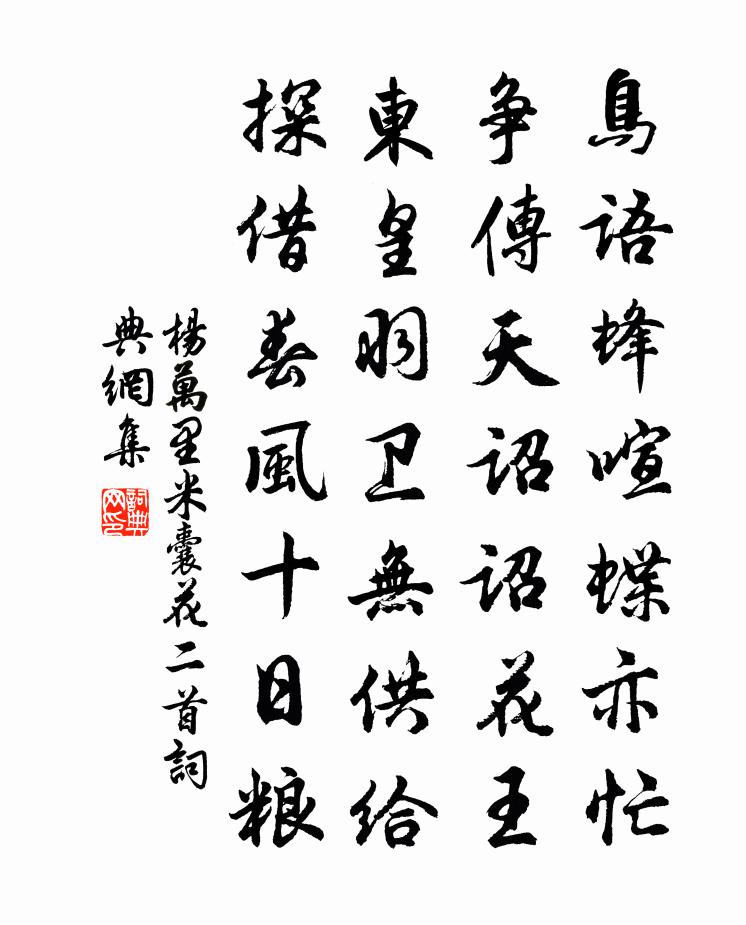 鳥語蜂喧蝶亦忙
争傳天詔詔花王
東皇羽卫無供給
探借春風十日粮
楊萬里米囊花二首詞
典網集
詞典网印